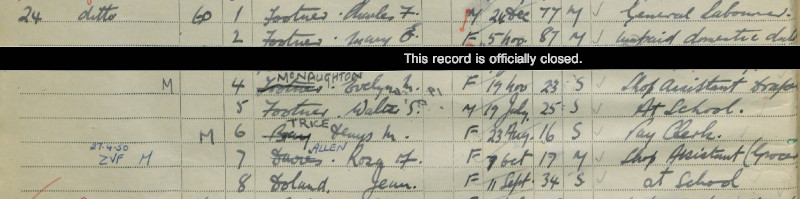 24 ditto 60 1 Footner . Charles F. M 24 Dec 77 M General Labourer.
2 Footner . Mary E. F 5 Nov 87 M unpaid domestic
This record is officially closed.
McNAUGHTON
M 4 Footner . Evelyn M. F 19 Nov 23 S Shop Assistant Drap
5 Footner . Walter S. M 19 July 25 S At School.
TRICE
M 6 Denys M. F 23 Aug. 16 S Pay Clerk.
27.4.50 ALLEN
ZVF M 7 Davies . Rosy F. F 7 Oct 17 M Shop Assistant (Grocer
8 Doland . Jean. F 11 Sept. 34 S at School